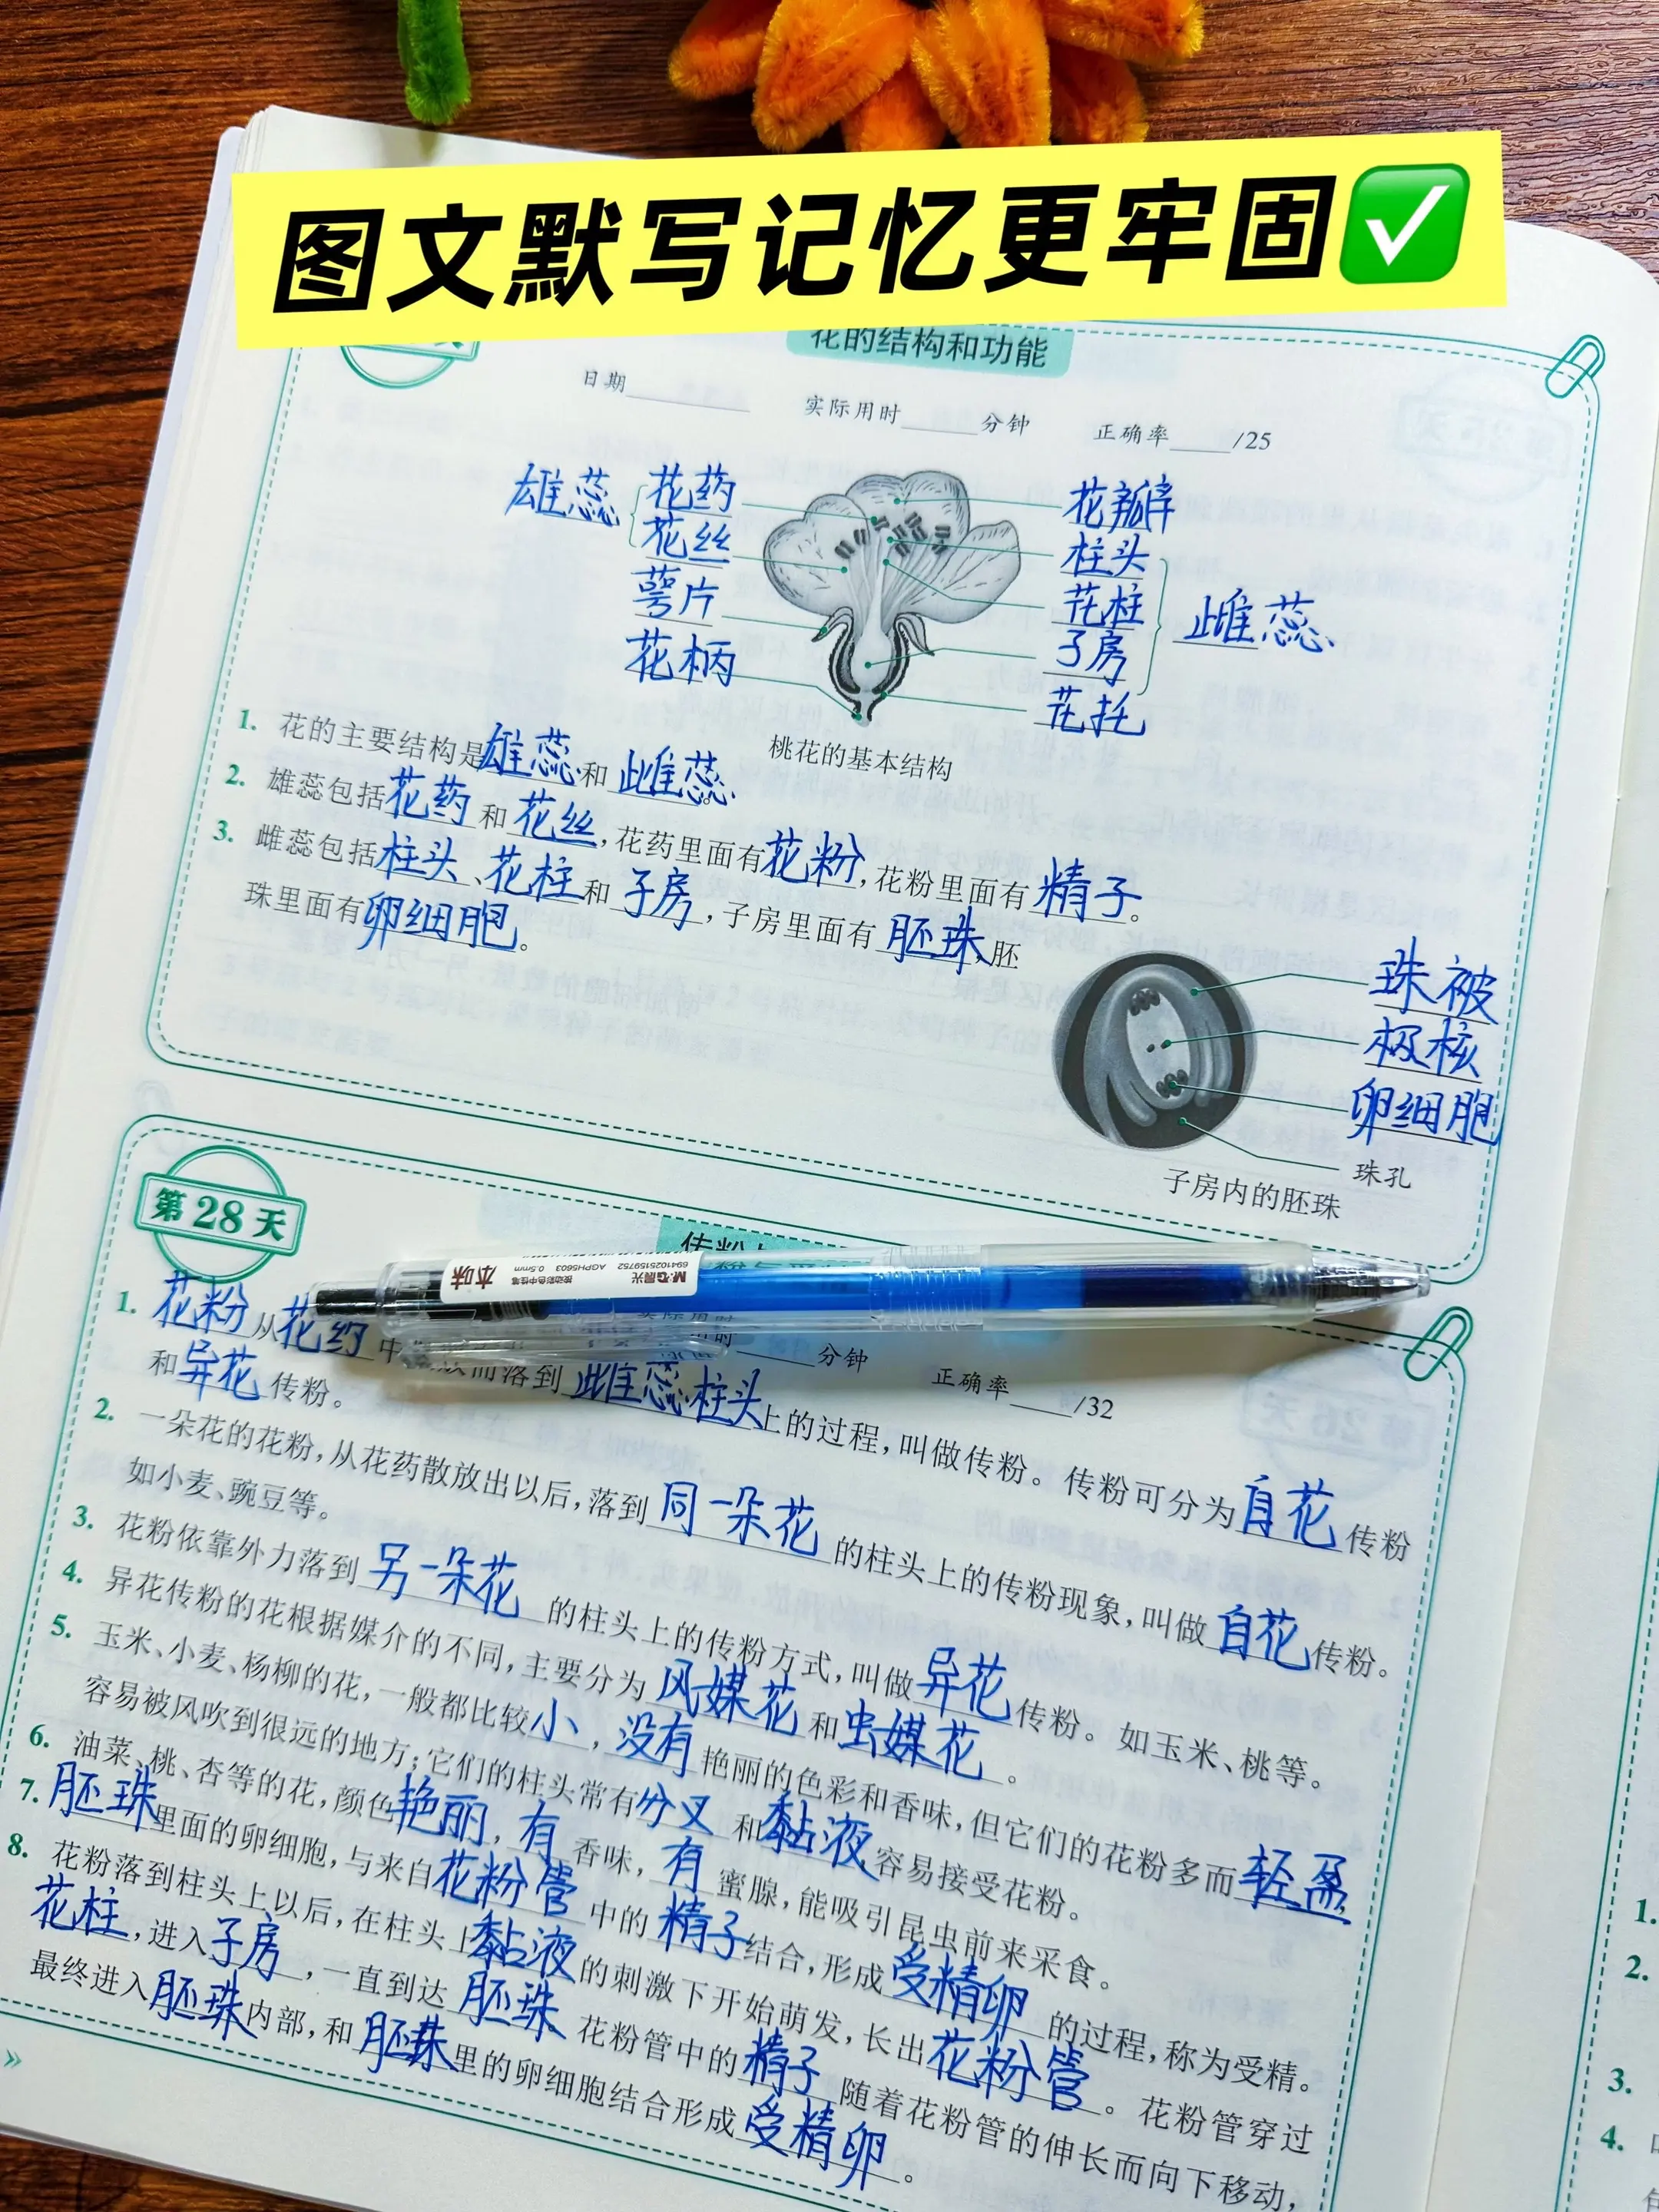 图文默写记忆更牢固✅
花的结构和功能
日期 实际用时 分钟 正确率 /25
雄蕊 花药
花丝
萼片
花柄
花瓣
柱头
花柱
子房
雌蕊
花托
桃花的基本结构
1. 花的主要结构是雄蕊和雌蕊。
2. 雄蕊包括花药和花丝,花药里面有花粉,花粉里面有精子。
3. 雌蕊包括柱头、花柱和子房,子房里面有胚珠,胚
珠里面有卵细胞。
珠被
极核
卵细胞
珠孔
子房内的胚珠
第28天
本味
M&G晨光
6941025159752
AGPH5603 0.5mm
按动彩色中性笔
分钟 正确率 /32
1. 花粉从花药中 而落到雌蕊柱头上的过程,叫做传粉。传粉可分为自花传粉
和异花传粉。
2. 一朵花的花粉,从花药散放出以后,落到同一朵花的柱头上的传粉现象,叫做自花传粉。
如小麦、豌豆等。
3. 花粉依靠外力落到另一朵花的柱头上的传粉方式,叫做异花传粉。如玉米、桃等。
4. 异花传粉的花根据媒介的不同,主要分为风媒花和虫媒花。
5. 玉米、小麦、杨柳的花,一般都比较小,没有艳丽的色彩和香味,但它们的花粉多而轻盈
容易被风吹到很远的地方;它们的柱头常有分叉和黏液容易接受花粉。
6. 油菜、桃、杏等的花,颜色艳丽,有香味,有蜜腺,能吸引昆虫前来采食。
7. 胚珠里面的卵细胞,与来自花粉管中的精子结合,形成受精卵的过程,称为受精。
8. 花粉落到柱头上以后,在柱头上黏液的刺激下开始萌发,长出花粉管。花粉管穿过
花柱,进入子房,一直到达胚珠。花粉管中的精子随着花粉管的伸长而向下移动,
最终进入胚珠内部,和胚珠里的卵细胞结合形成受精卵。
1.
2.
3.
4.